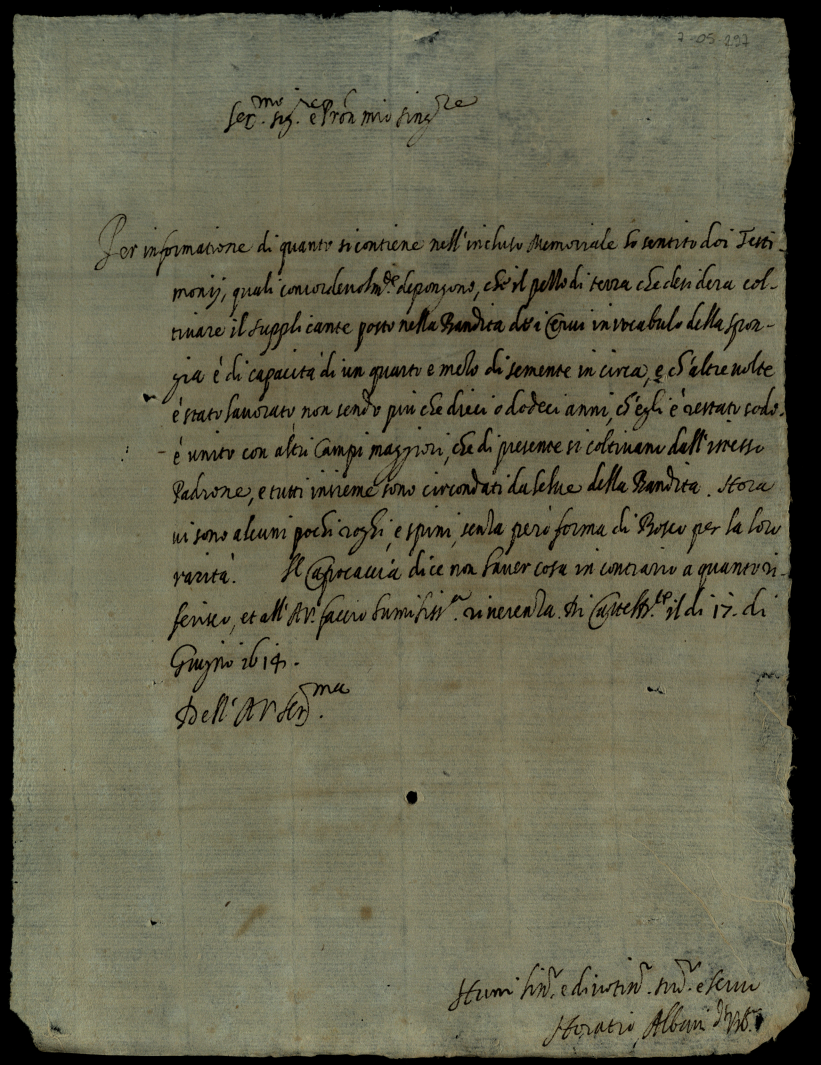 7-05-297
Ser.mo sig.re e Pron mio sing.re
Per informatione di quanto si contiene nell'incluso Memoriale ho sentito doi Testi-
monij, quali concordevolm.te depongono, che il pezzo di terra che desidera col-
tivare il supplicante posto nella Bandita de i Cervi in vocabulo della spon-
gia è di capacità di un quarto e mezzo di semente in circa, e ch'altre volte
è stato lavorato, non sendo più che dieci o dodeci anni, ch'egli è restato sodo.
è unito con altri Campi maggiori, che di presente si coltivano dall'istesso
Padrone, e tutti insieme sono circondati da selve della Bandita. Hora
vi sono alcuni pochi roghi, e spini, senza però forma di Bosco per la loro
rarità. Il Capocaccia dice non haver cosa in contrario a quanto ri-
ferisco, et all'A.V. faccio humiliss.a riverenza. Di
il dì 17. di
Giugno 1614.
Dell'A.V. Ser.ma
Humiliss. e divotiss. e servo
Horatio Albani